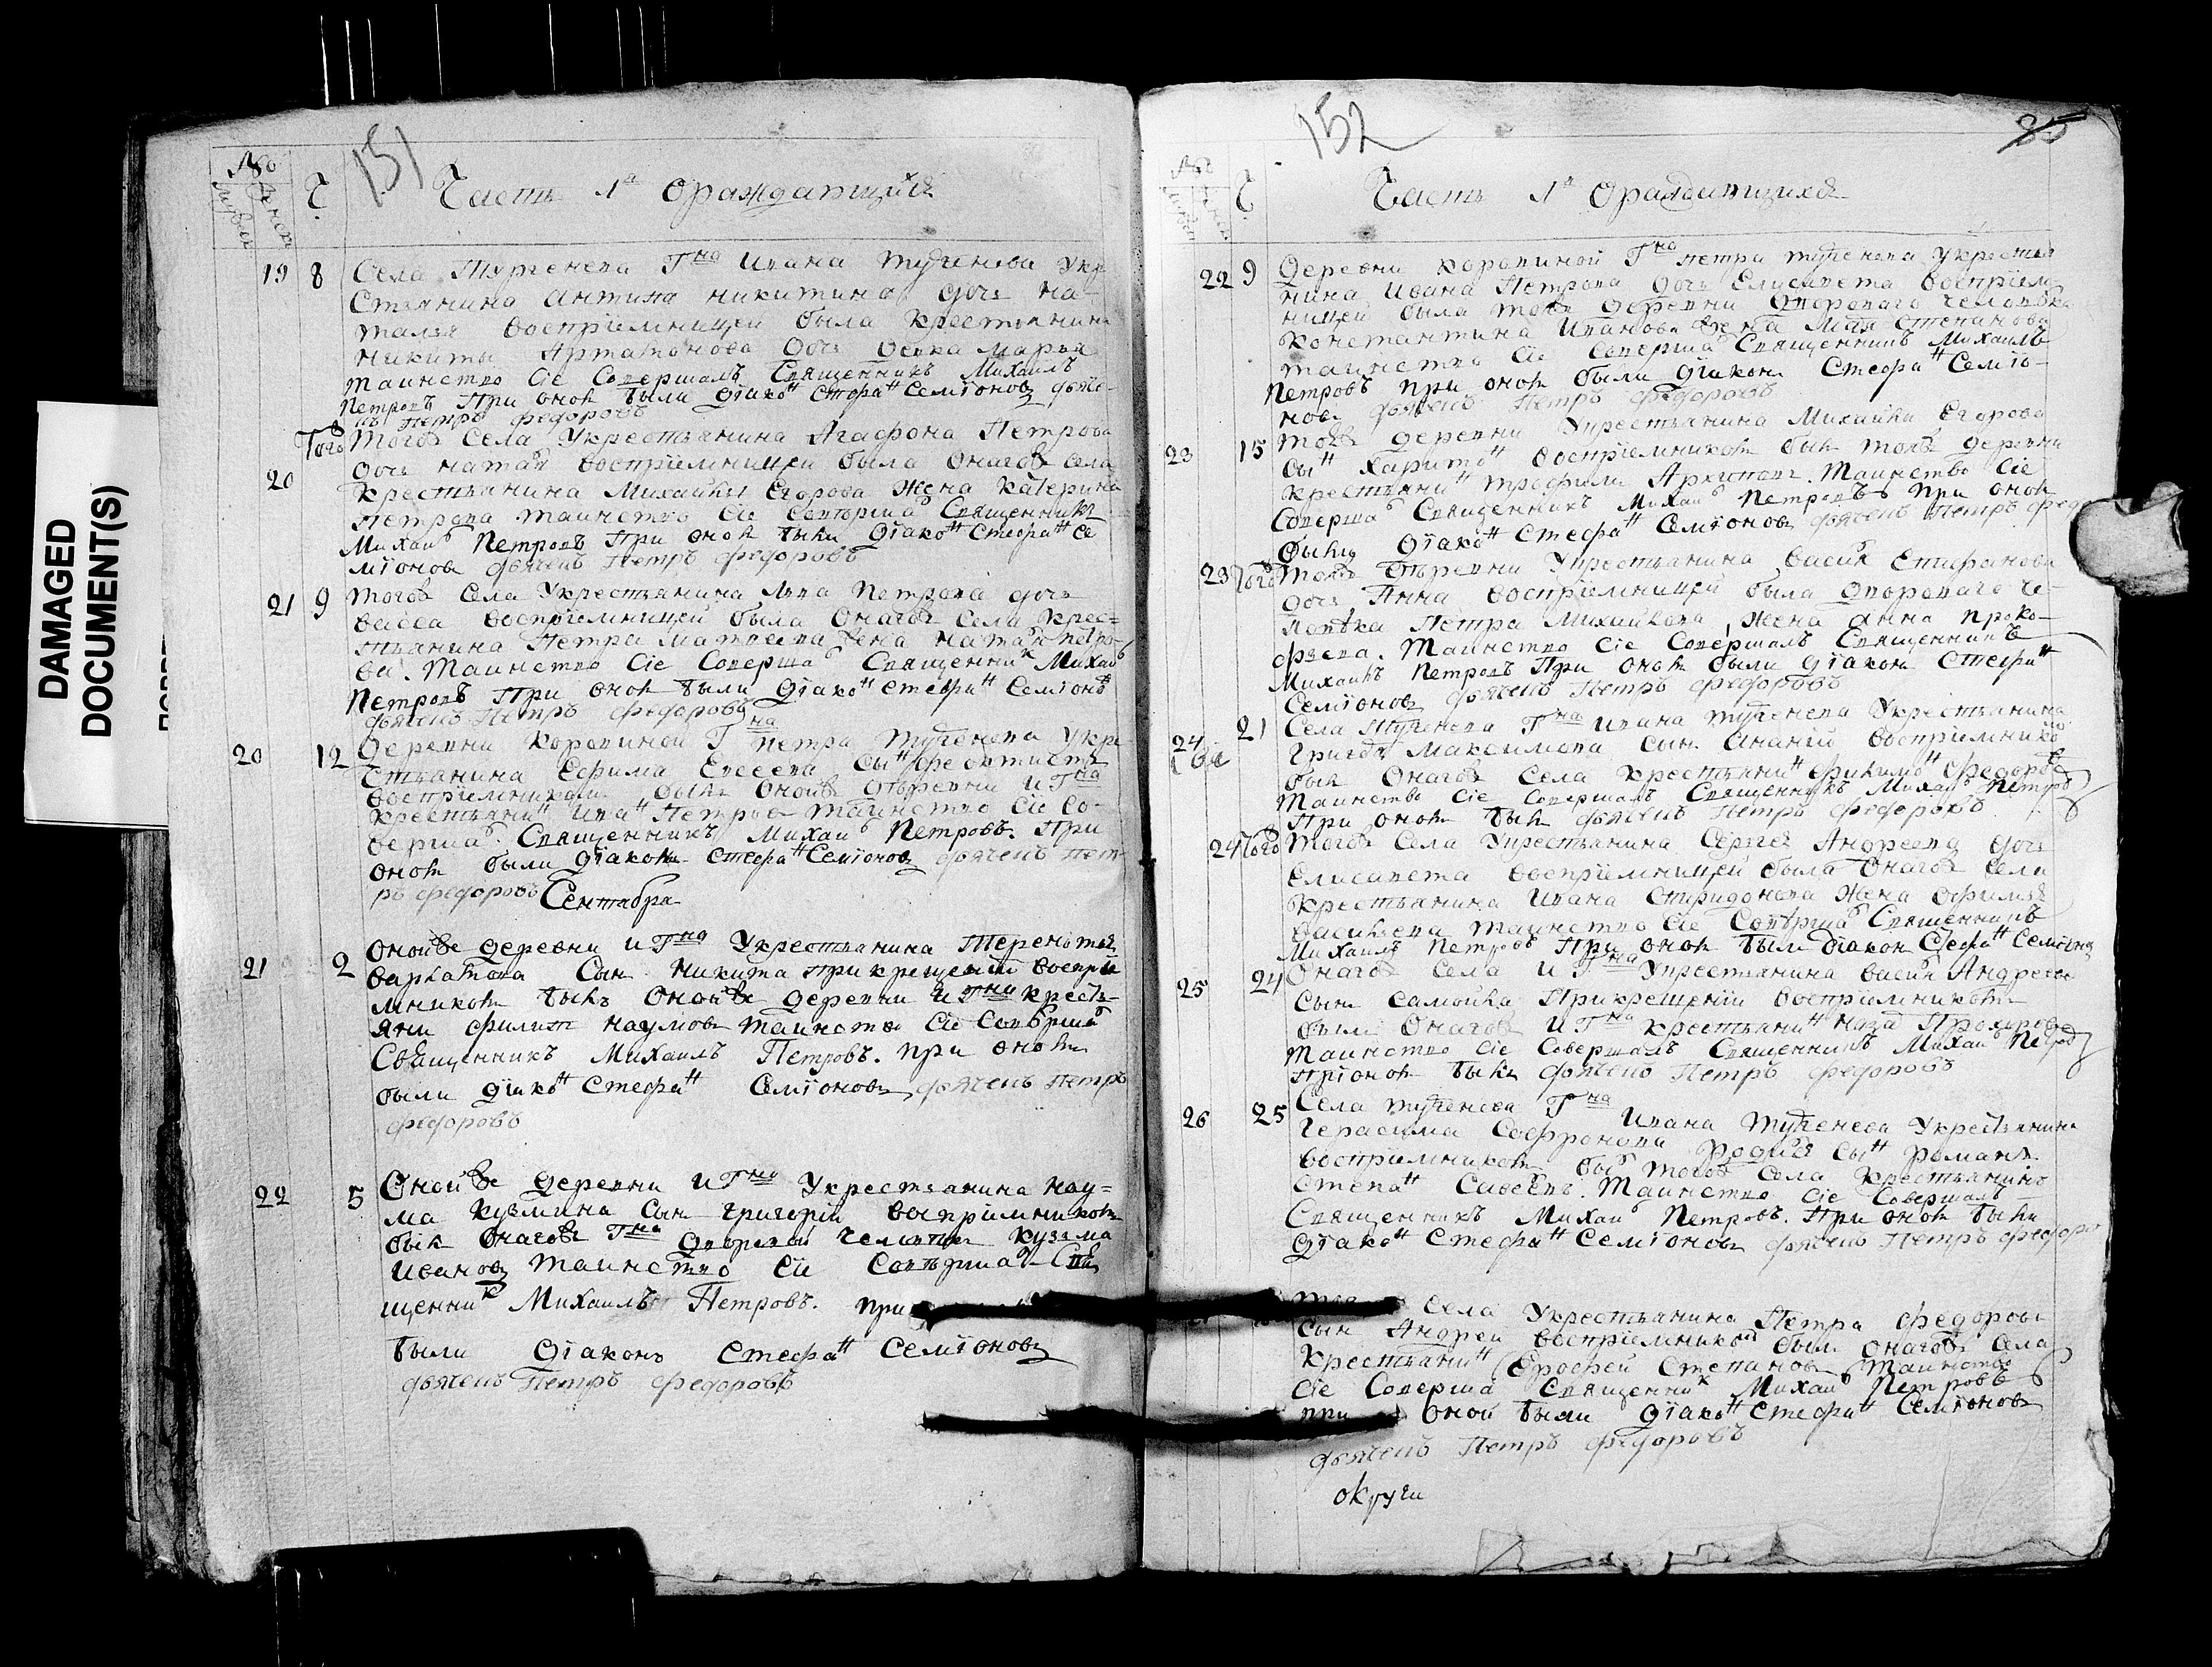 DAMAGED
DOCUMENT(S)
151
№
мужеск
женск
Ч
Часть 1я о раждающихся
19 8 Села Тургенева Гна Ивана Тургенева у кре
стьянина Антипа Никитина дочь На-
талья восприемницей была крестьянина
Никиты Артамонова дочь девка Марья
таинство сіе совершалъ Священникъ Михаилъ
Петровъ при оном были діаконъ Стефанъ Семіоновъ дьяче-
къ Петръ Федоровъ
20 Того Тогожъ села у крестьянина Агафона Петрова
дочь Наталья восприемницей была онагожъ села
крестьянина Михайлы Егорова жена Катерина
Петрова таинство сіе совершалъ Священникъ
Михаилъ Петровъ при оном были діаконъ Стефанъ Се
міоновъ дьячекъ Петръ Федоровъ
21 9 Тогожъ села у крестьянина Петрова дочь
Васса восприемницей была онагожъ села крес=
тьянина Петра Матвеева жена Наталья Петро-
ва. Таинство сіе совершалъ Священникъ Михаилъ
Петровъ при оном были діаконъ Стефанъ Семіоновъ
дьячекъ Петръ Федоровъ
20 12 Деревни Коровиной Гна Петра Тургенева у кре
стьянина Ефима Евсеева сынъ Феоктистъ
восприемником былъ оной же деревни и Гна
крестьянинъ Иванъ Петровъ таинство сіе со-
вершалъ Священникъ Михаилъ Петровъ. При
оном были діаконъ Стефанъ Семіоновъ дьячекъ Пет-
ръ Федоровъ
Сентября
21 2 Оной же деревни и Гна у крестьянина Терентья
сын Никита при крещеніи воспріе
мником былъ оной же деревни и Гна кресть-
янинъ Филип Наумовъ таинство сіе совершалъ
Священникъ Михаилъ Петровъ. при оном
были діаконъ Стефанъ Семіоновъ дьячекъ Петръ
Федоровъ
22 5 Оной же деревни и Гна у крестьянина Нау=
ма Кузмина сын Григорій восприемником
был онагожъ Гна дворовой человек Кузма
Иванов таинство сіе совершалъ Свя
щенникъ Михаилъ Петровъ. при
были діаконъ Стефанъ Семіоновъ
дьячекъ Петръ Федоровъ
152
25
№
Ч
Часть 1я о раждающихся
22 9 Деревни Коровиной Гна Петра Тургенева у крестья
нина Ивана Петрова дочь Елисавета восприем
ницей была тойже деревни дворового человека
Константина Иванова жена Степанова
таинство сіе совершалъ Священникъ Михаилъ
Петровъ при оном были діакон Стефанъ Семіо-
новъ дьячекъ Петръ Федоровъ
23 15 Тойже деревни у крестьянина Михайла Егорова
сынъ Харитонъ восприемником был тойже деревни
крестьянинъ Трофим Архипов. Таинство сіе
совершалъ Священникъ Михаилъ Петровъ при оном
были діаконъ Стефанъ Семіоновъ дьячекъ Петръ Фед
23 Того Тойже деревни у крестьянина Василья Епифанова
дочь Анна восприемницей была дворового че-
ловека Петра Михайлова жена Анна Проко-
фьева. Таинство сіе совершалъ Священникъ
Михаилъ Петровъ при оном были діакон Стефанъ
Семіоновъ дьячекъ Петръ Федоровъ
24 21 Села Тургенева Гна Ивана Тургенева у крестьянина
Григорья Максимова сын Ананій восприемником
был онагожъ села крестьянинъ Федоровъ
Таинство сіе совершалъ Священникъ Михаилъ Петровъ
При оном был дьячекъ Петръ Федоровъ
24 Того Тогожъ села у крестьянина Сергея Андреева дочь
Елисавета восприемницей была онагожъ села
крестьянина Ивана Спиридонова жена Офимья
Васильева таинство сіе совершалъ Священникъ
Михаилъ Петровъ при оном были діакон Стефанъ Семіонов
25 24 Онагожъ села и Гна у крестьянина Василья Андреева
сын Самойла при крещеніи восприемником
был онагожъ и Гна крестьянинъ Прохоровъ
Таинство сіе совершалъ Священникъ Михаилъ Петровъ
при оном былъ дьячекъ Петръ Федоровъ
26 25 Села Тургенева Гна Ивана Тургенева у крестьянина
Герасима Софронова родился сынъ Роман.
восприемником былъ тогожъ села крестьянинъ
Степанъ Савеевъ. Таинство сіе совершалъ
Священникъ Михаилъ Петровъ. При оном были
діаконъ Стефанъ Семіоновъ дьячекъ Петръ Федоро
села у крестьянина Петра Федорова
сын Андрей восприемником был онагожъ села
крестьянинъ Ерофей Степанов Таинство
сіе совершалъ Священникъ Михаилъ Петровъ
при оной были діаконъ Стефанъ Семіоновъ
дьячекъ Петръ Федоровъ
округи